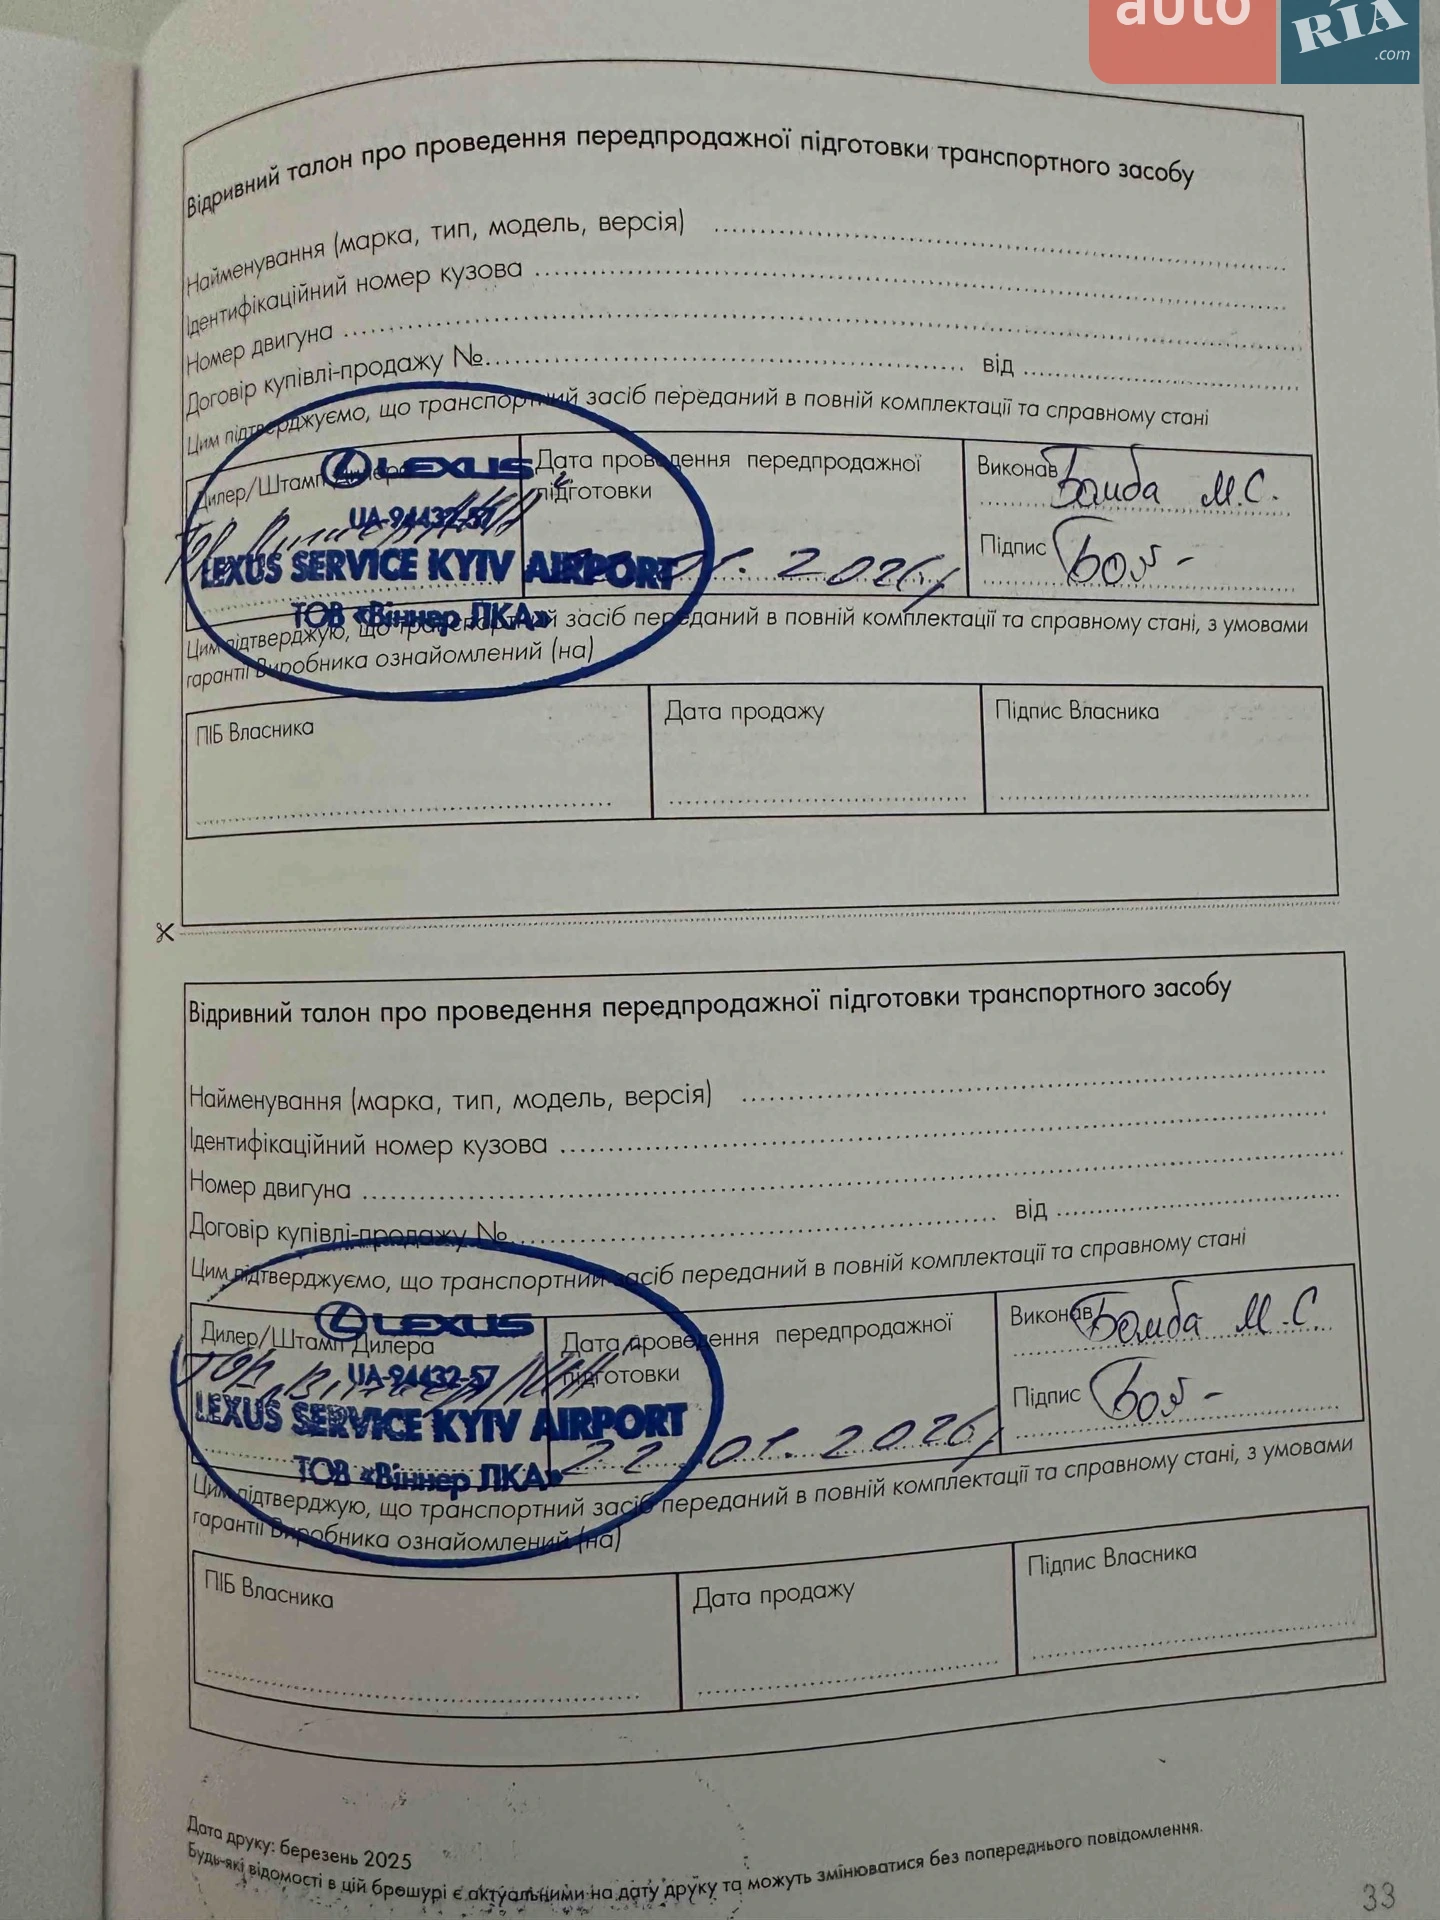 auto RIA.com
Відривний талон про проведення передпродажної підготовки транспортного засобу
Найменування (марка, тип, модель, версія)
Ідентифікаційний номер кузова
Номер двигуна
Договір купівлі-продажу № від
Цим підтверджуємо, що транспортний засіб переданий в повній комплектації та справному стані
Дилер/Штамп Дилера
LEXUS
UA-94432-57
LEXUS SERVICE KYIV AIRPORT
ТОВ «Віннер ЛКА»
Дата проведення передпродажної
підготовки
01. 2026
Виконав Бомба М.С.
Підпис
Цим підтверджую, що транспортний засіб переданий в повній комплектації та справному стані, з умовами
гарантії Виробника ознайомлений (на)
ПІБ Власника
Дата продажу
Підпис Власника
Відривний талон про проведення передпродажної підготовки транспортного засобу
Найменування (марка, тип, модель, версія)
Ідентифікаційний номер кузова
Номер двигуна
Договір купівлі-продажу № від
Цим підтверджуємо, що транспортний засіб переданий в повній комплектації та справному стані
Дилер/Штамп Дилера
LEXUS
UA-94432-57
LEXUS SERVICE KYIV AIRPORT
ТОВ «Віннер ЛКА»
Дата проведення передпродажної
підготовки
22.01.2026
Виконав Бомба М.С.
Підпис
Цим підтверджую, що транспортний засіб переданий в повній комплектації та справному стані, з умовами
гарантії Виробника ознайомлений (на)
ПІБ Власника
Дата продажу
Підпис Власника
Дата друку: березень 2025
Будь-які відомості в цій брошурі є актуальними на дату друку та можуть змінюватися без попереднього повідомлення.
33